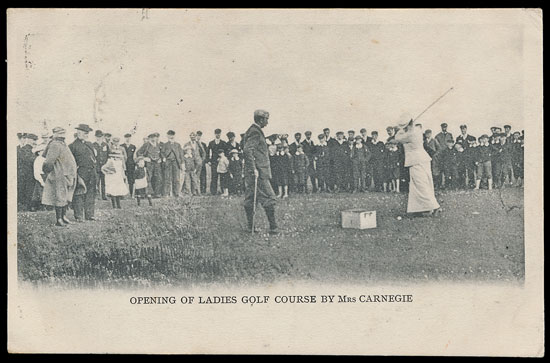 OPENING OF LADIES GOLF COURSE BY MRS CARNEGIE